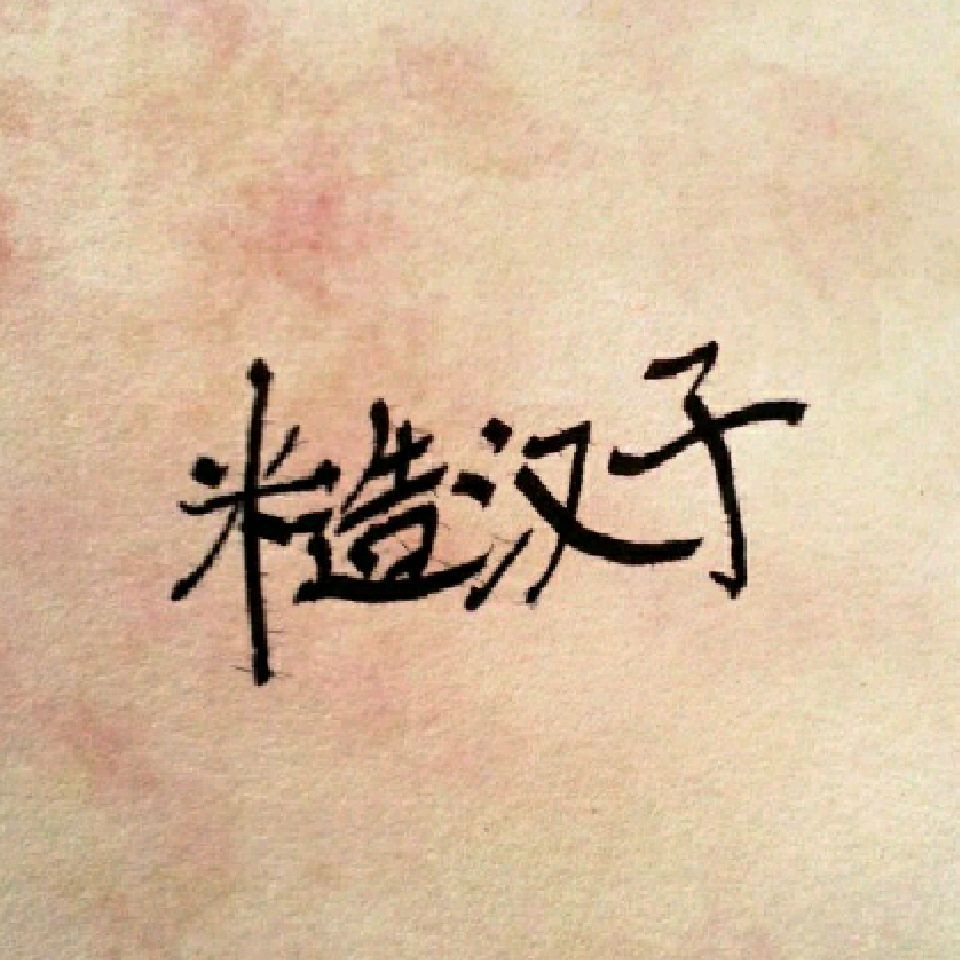 糙汉子